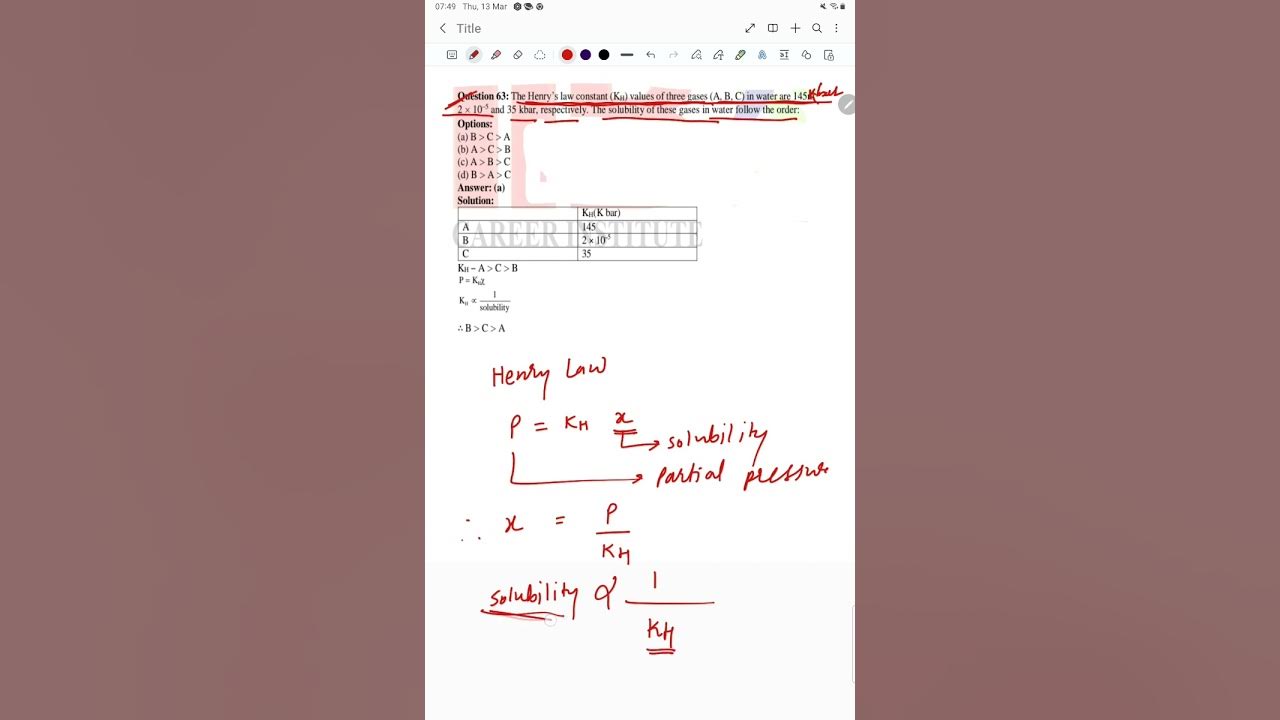 07:49 Thu, 13 Mar
Title
Question 63: The Henry's law constant (KH) values of three gases (A, B, C) in water are 145 Kbar
2 × 10⁻⁵ and 35 kbar, respectively. The solubility of these gases in water follow the order:
Options:
(a) B > C > A
(b) A > C > B
(c) A > B > C
(d) B > A > C
Answer: (a)
Solution:
KH(K bar)
A 145
CAREER INSTITUTE
B 2 × 10⁻⁵
C 35
KH – A > C > B
P = KHχ
KH ∝ 1/solubility
∴ B > C > A
Henry Law
P = KH x
→ solubility
→ Partial pressure
∴ x = P/KH
solubility ∝ 1/KH